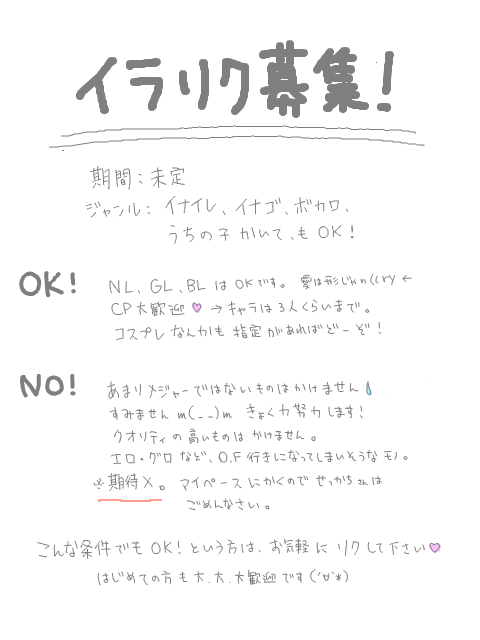 イラリク募集!
期間：未定
ジャンル：イナイレ、イナゴ、ボカロ、
うちの子かいて、も OK!
OK! NL、GL、BL は OKです。 愛は形じゃn((ry ←
CP大歓迎 💜 → キャラは3人くらいまで。
コスプレなんかも 指定があればどーぞ!
NO! あまりメジャーではないものはかけません💧
すみません m(__)m きょく力努力します!
クオリティの高いものは かけません。
エロ・グロ など、O.F 行きになってしまいそうなモノ。
※期待×。 マイペースにかくので せっかちさんは
ごめんなさい。
こんな条件でも OK! という方は、お気軽に リクして下さい💜
はじめての方も 大、大、大歓迎です('ひ'*)